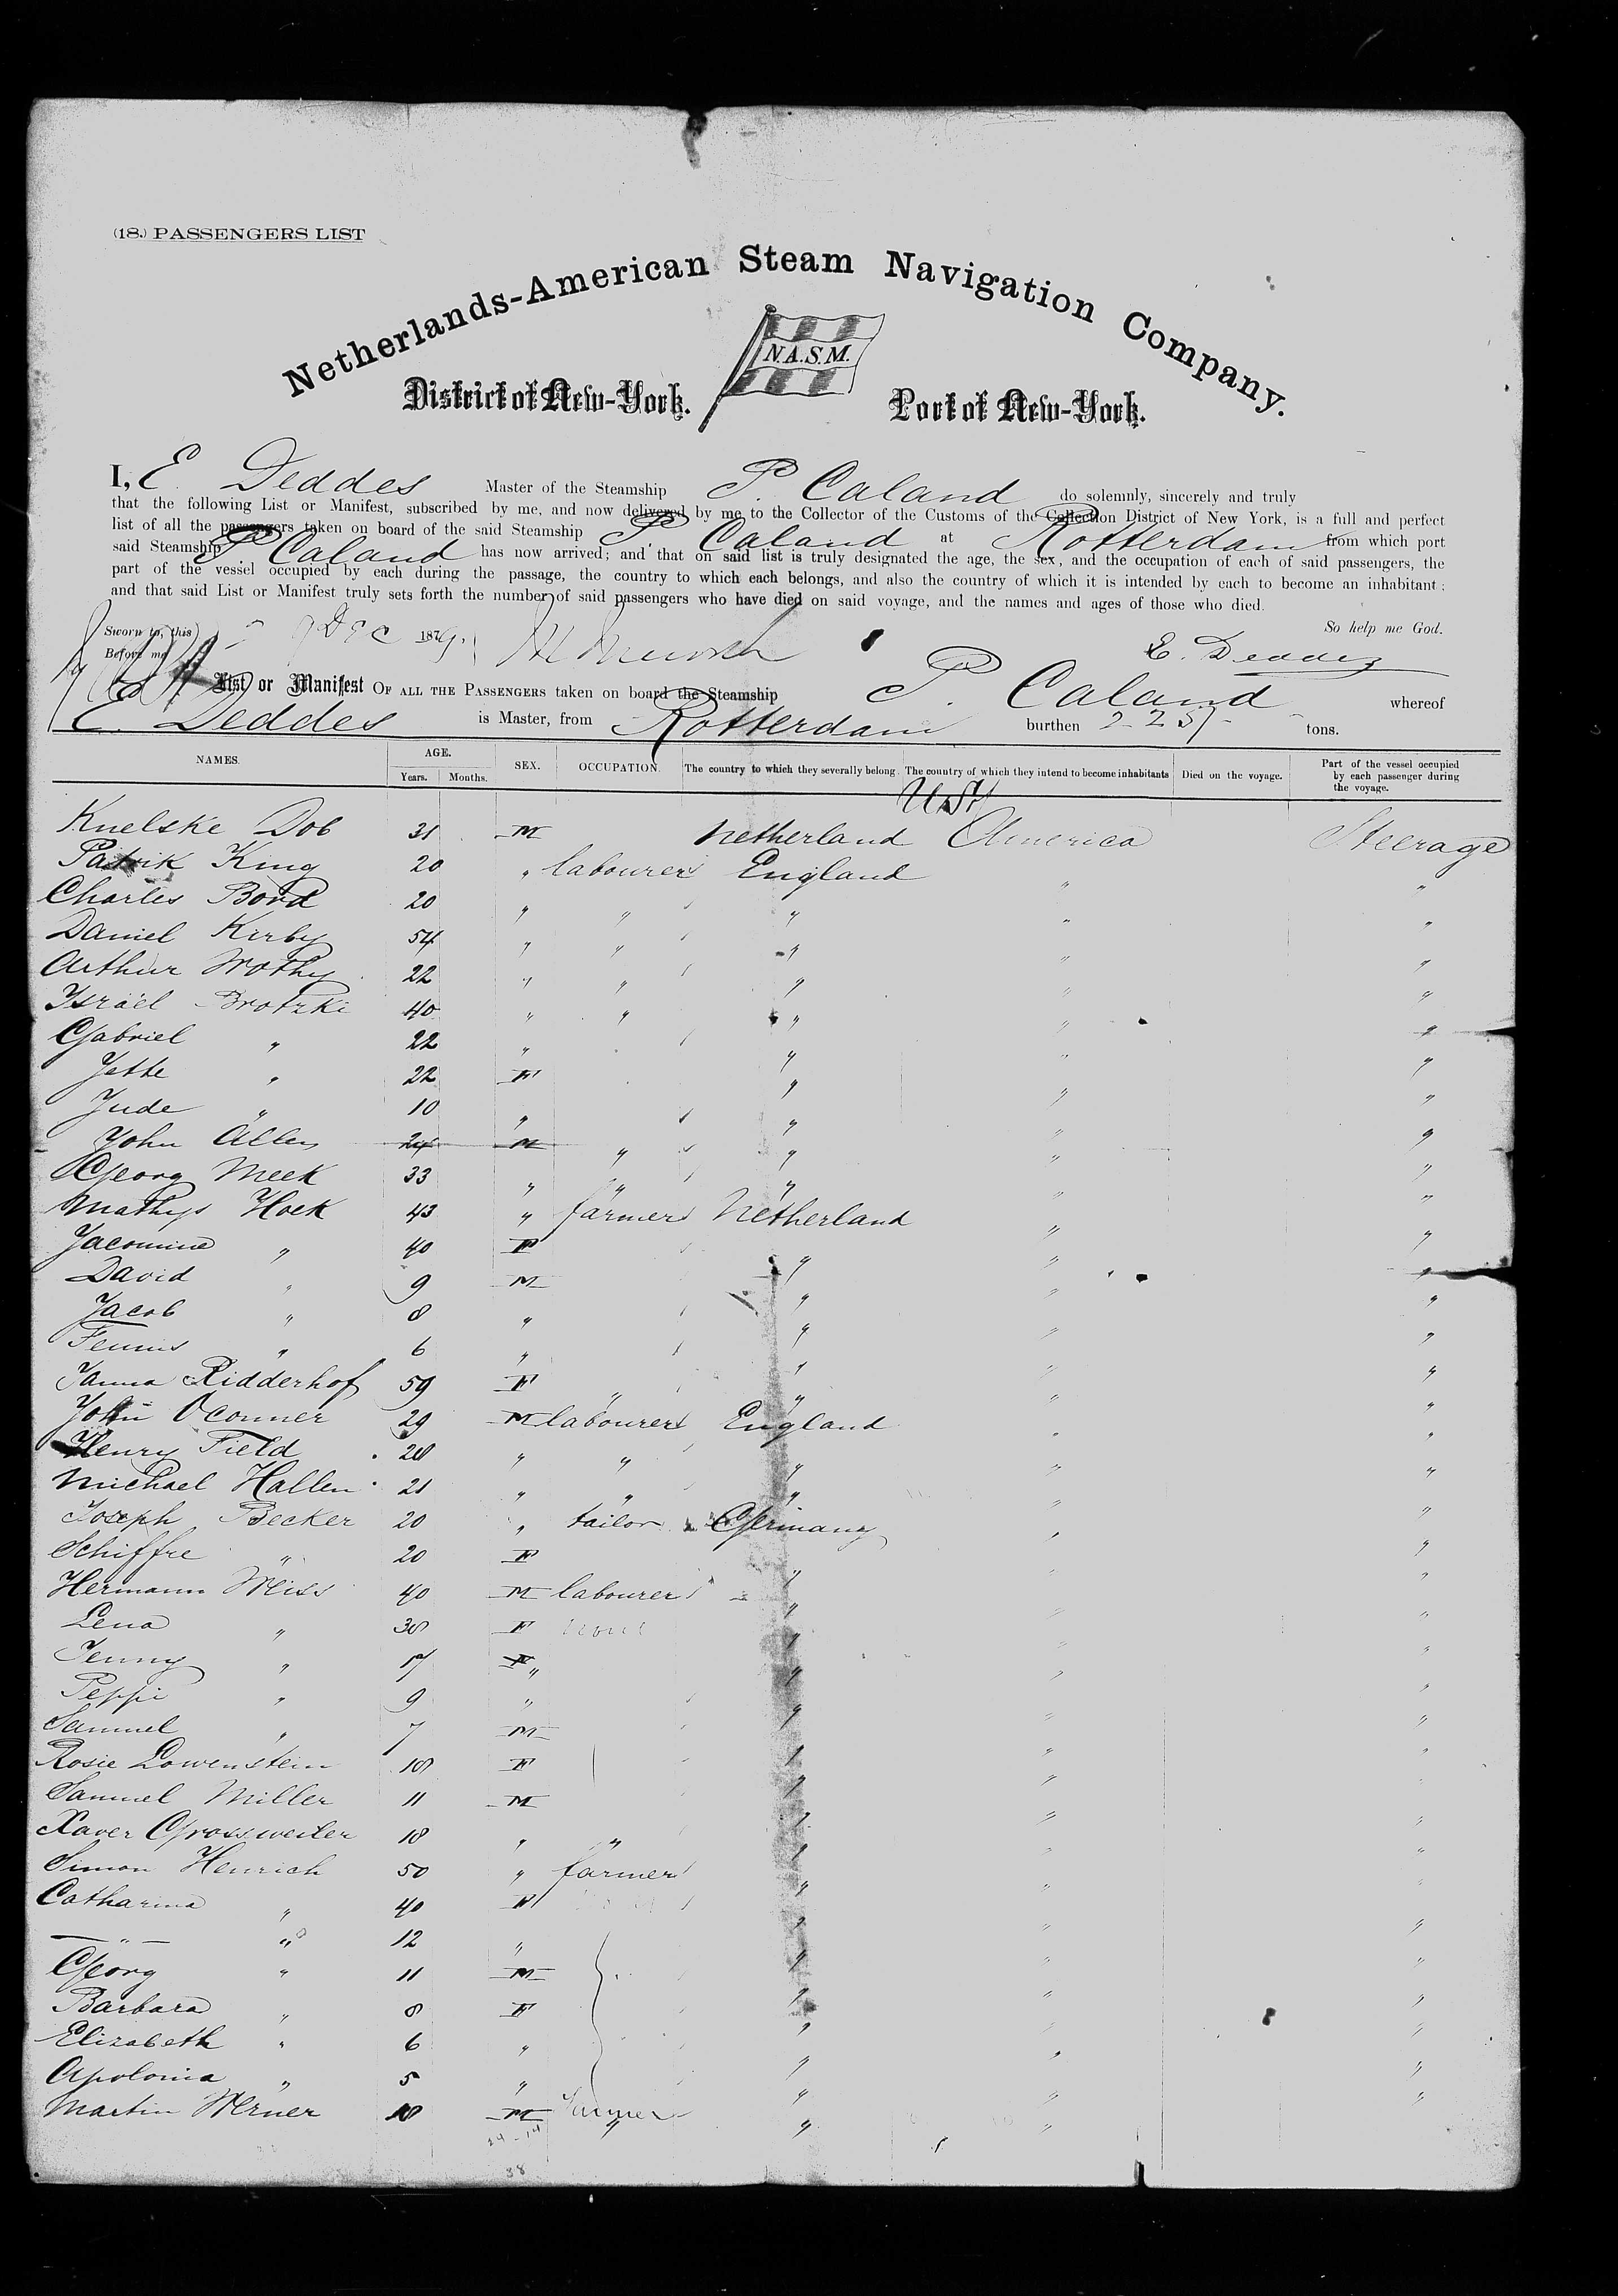 (18.) PASSENGERS LIST
Netherlands-American Steam Navigation Company.
N.A.S.M.
District of New-York. Port of New-York.
I, E. Deddes Master of the Steamship P. Caland do solemnly, sincerely and truly
that the following List or Manifest, subscribed by me, and now delivered by me to the Collector of the Customs of the Collection District of New York, is a full and perfect
list of all the passengers taken on board of the said Steamship P. Caland at Rotterdam from which port
said Steamship P. Caland has now arrived; and that on said list is truly designated the age, the sex, and the occupation of each of said passengers, the
part of the vessel occupied by each during the passage, the country to which each belongs, and also the country of which it is intended by each to become an inhabitant;
and that said List or Manifest truly sets forth the number of said passengers who have died on said voyage, and the names and ages of those who died.
So help me God.
Sworn to, this Dec 1879.
Before me E. Deddes
List or Manifest OF ALL THE PASSENGERS taken on board the Steamship P. Caland whereof
E. Deddes is Master, from Rotterdam burthen tons.
NAMES. AGE. SEX. OCCUPATION. The country to which they severally belong. The country of which they intend to become inhabitants Died on the voyage. Part of the vessel occupied by each passenger during the voyage.
Years. Months.
Knelske Dob 31 M Netherland America Steerage
Patrik King 20 " labourer England " "
Charles Bord 20 " " " " "
Daniel Kirby 54 " " " " "
Arthur Wothy 22 " " " " "
Israël Brotzki 40 " " " " "
Gabriel " 22 " " " "
Jette " 22 F " " "
Jude " 10 " " " "
John Allen 24 M " " " "
Georg Meek 33 " " " " "
Mathys Hoek 43 " farmer Netherland " "
Jacomine " 40 F " " "
David " 9 M " " "
Jacob " 8 " " " "
Teunis " 6 " " " "
Janna Ridderhof 59 F " " " "
John Oconner 29 M labourer England " "
Henry Field 28 " " " " "
Michael Hallen 21 " " " " "
Joseph Becker 20 " tailor Germany " "
Schiffre " 20 F " " "
Hermann Weiss 40 M labourer " " "
Lena " 38 F none " " "
Jenny " 17 " " " "
Peppi " 9 " " " "
Samuel " 7 M " " "
Rosie Lowenstein 18 F " " "
Samuel Miller 11 M " " "
Xaver Grossweiler 18 " " " " "
Simon Henrich 50 " farmer " " "
Catharina " 40 F " " "
— " — " 12 " " " "
Georg " 11 M " " "
Barbara " 8 F " " "
Elizabeth " 6 " " " "
Apolonia " 5 " " " "
Martin Werner 18 M farmer " "
24 - 14
38